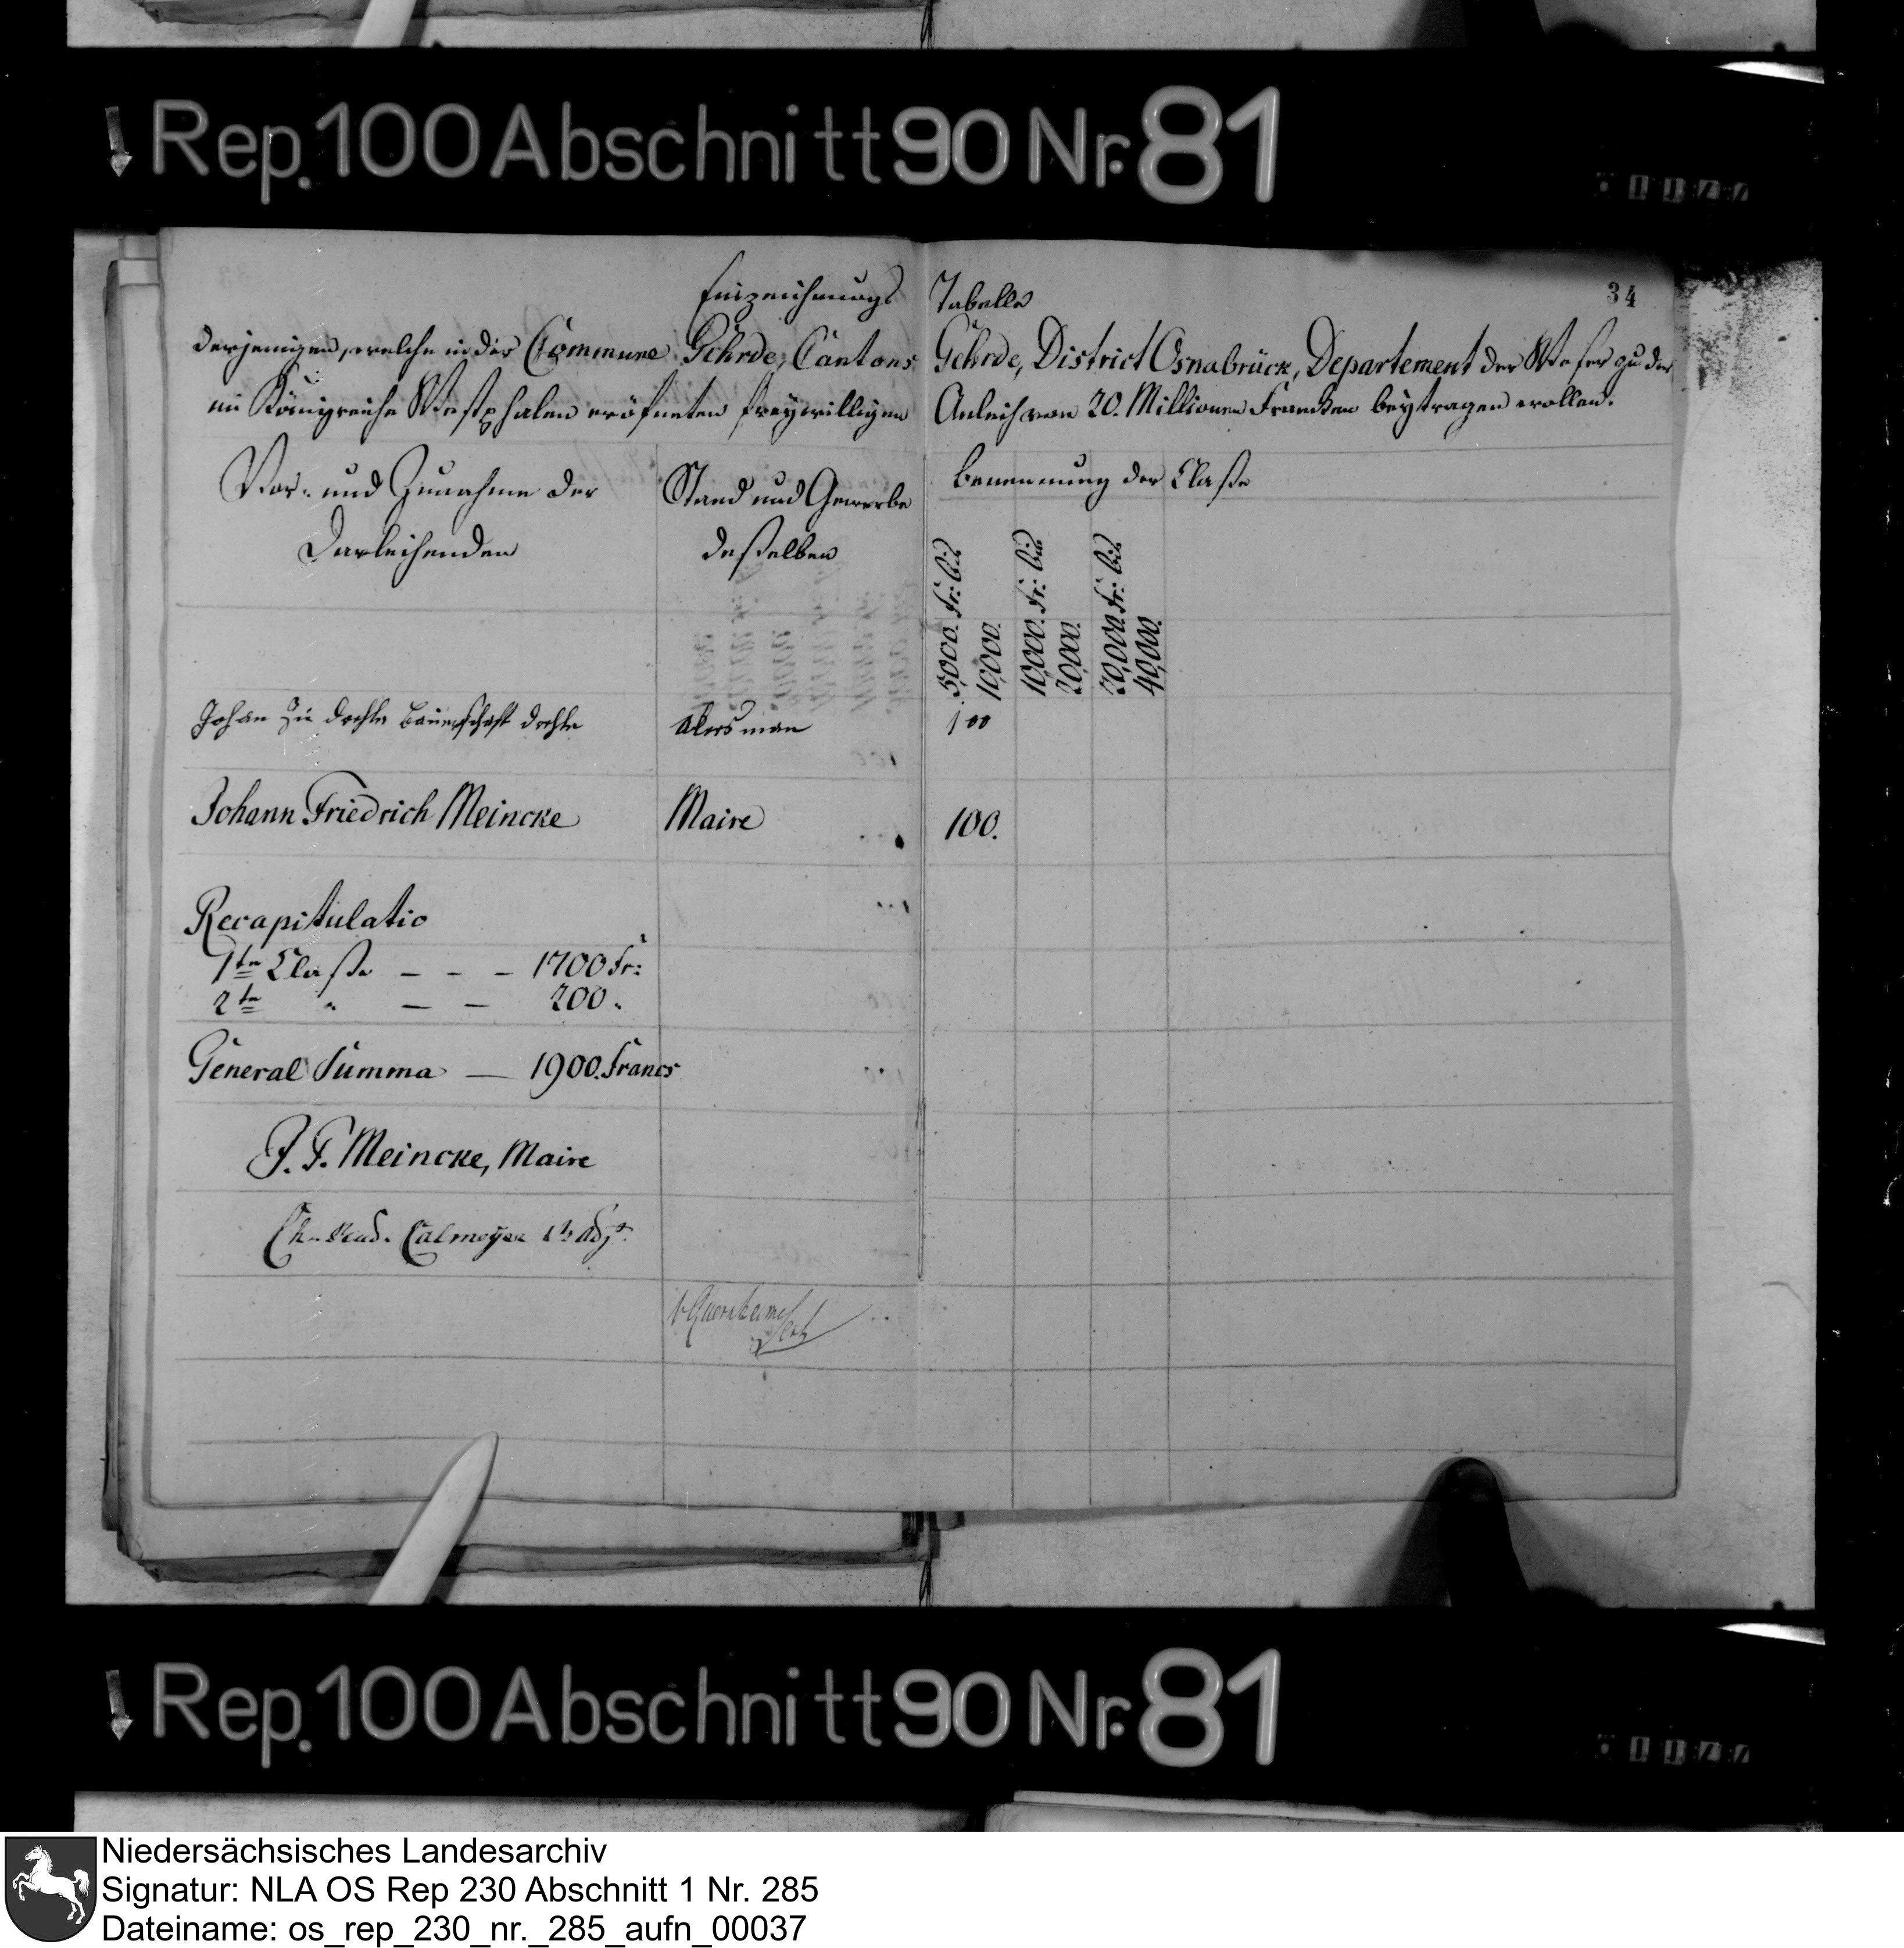 Rep. 100 Abschnitt 90 Nr. 81
34
Einzeichnungs Tabelle
derjenigen, welche in der Commune Gehrde, Cantons Gehrde, District Osnabrück, Departement der Weser zu der
im Königreiche Westphalen eröfneten freywilligen Anleih von 20. Millionen Franken beytragen wollen.
Vor- und Zunahme der
Darleihenden
Stand und Gewerbe
deßelben
Benennung der Claße
5,000. Fr: bis
10,000.
10,000. Fr: bis
20,000.
20,000. Fr: bis
40,000.
Johan zu drehle Bauerschaft drehle
akersman
100
Johann Friedrich Meincke
Maire
100.
Recapitulatio
1te Claße — — — 1700 Fr:
2te " — — 200 "
General Summa — 1900. Francs
J. F. Meincke, Maire
Calmeyer Adjt.
Rep. 100 Abschnitt 90 Nr. 81
Niedersächsisches Landesarchiv
Signatur: NLA OS Rep 230 Abschnitt 1 Nr. 285
Dateiname: os_rep_230_nr._285_aufn_00037